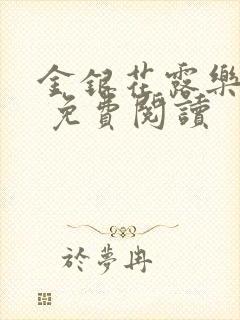 金銀花露樂
免費閱讀
於夢冉